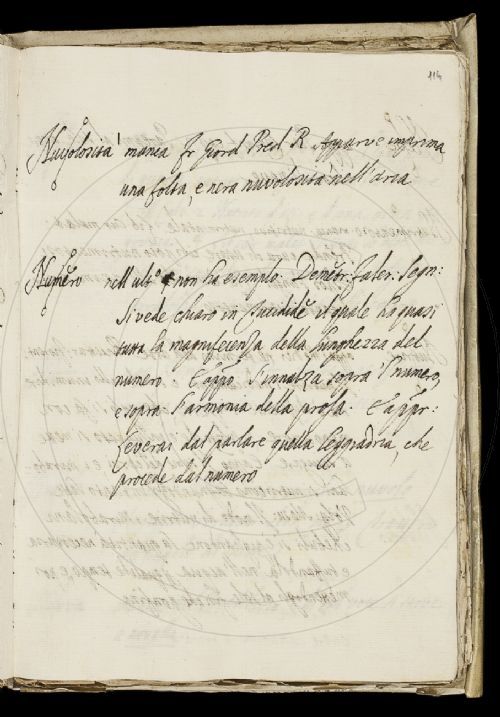 114
Nuvolosità manca fr Giord Pred R Apparve imprima
una folta, e nera nuvolosità nell'aria
Numero nell ult.º non ha esemplo. Demetr: Faler. Segn:
Si vede chiaro in Tucidide il quale ha quasi
tutta la magnificenza della lunghezza del
numero. E app.º s'innalza sopra 'l numero,
e sopra l'armonia della prosa. E appr:
Leverai dal parlare quella leggiadria, che
procede dal numero